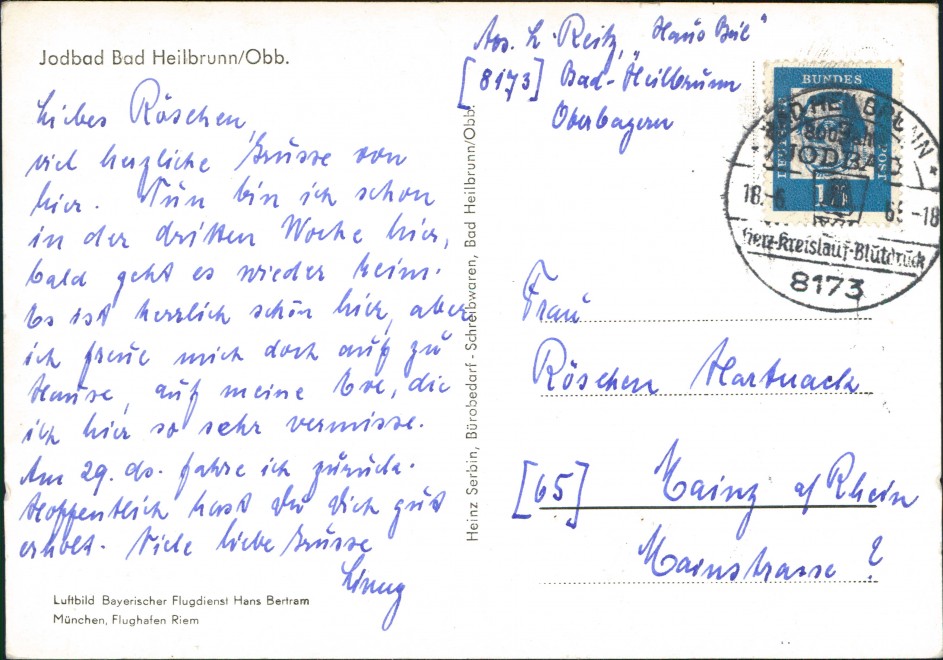 Jodbad Bad Heilbrunn/Obb.
Liebes Röschen,
viel herzliche Grüsse von
hier. Nun bin ich schon
in der dritten Woche hier,
bald geht es wieder heim.
Es ist herrlich schön hier, aber
ich freue mich doch auf zu
Hause, auf meine Eve, die
ich hier so sehr vermisse.
Am 29. ds. fahre ich zurück.
Hoffentlich hast Du Dich gut
erholt. Viele liebe Grüsse
Luftbild Bayerischer Flugdienst Hans Bertram
München, Flughafen Riem
Heinz Serbin, Bürobedarf - Schreibwaren, Bad Heilbrunn/Obb.
Abs. L. Reitz, "Haus
[8173] Bad-Heilbrunn
Oberbayern
BUNDES
POST
BAD HEILBRUNN
JODBAD
18.-6. 65.-18
Herz-Kreislauf-Blutdruck
8173
Frau
Röschen Hartnack
[65] Mainz a/Rhein
Mainstrasse ?